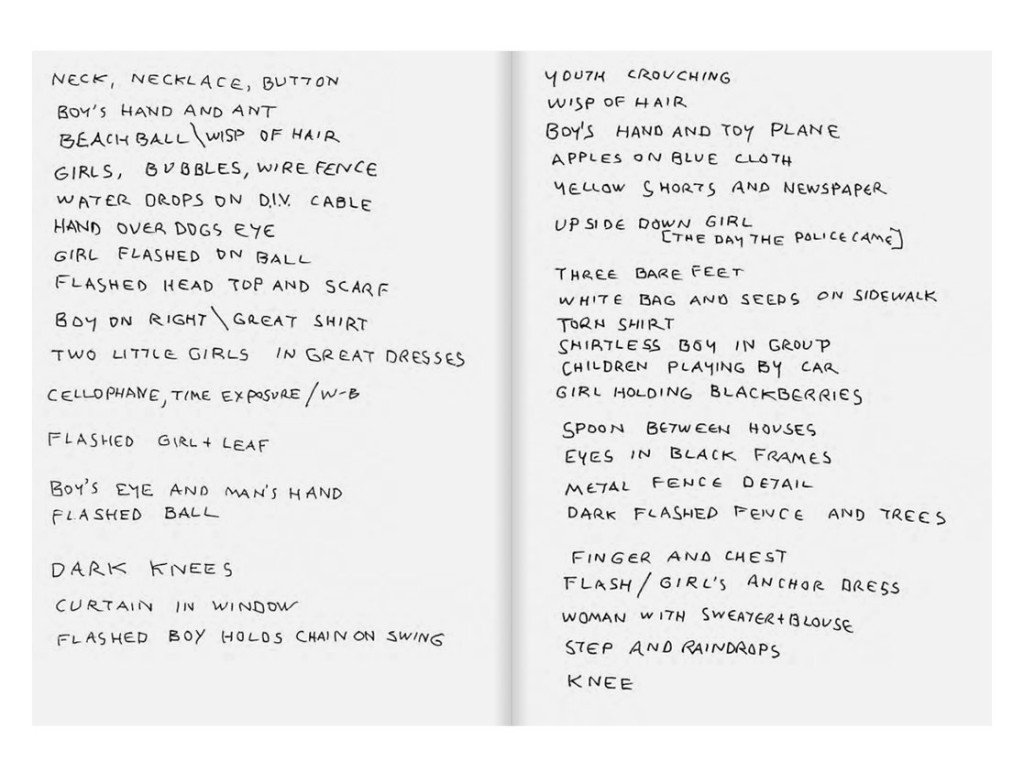 NECK, NECKLACE, BUTTON
BOY'S HAND AND ANT
BEACH BALL\WISP OF HAIR
GIRLS, BUBBLES, WIRE FENCE
WATER DROPS ON D.I.V. CABLE
HAND OVER DOGS EYE
GIRL FLASHED ON BALL
FLASHED HEAD TOP AND SCARF
BOY ON RIGHT\GREAT SHIRT
TWO LITTLE GIRLS IN GREAT DRESSES
CELLOPHANE, TIME EXPOSURE/W-B
FLASHED GIRL + LEAF
BOY'S EYE AND MAN'S HAND
FLASHED BALL
DARK KNEES
CURTAIN IN WINDOW
FLASHED BOY HOLDS CHAIN ON SWING
YOUTH CROUCHING
WISP OF HAIR
BOY'S HAND AND TOY PLANE
APPLES ON BLUE CLOTH
YELLOW SHORTS AND NEWSPAPER
UPSIDE DOWN GIRL
[THE DAY THE POLICE CAME]
THREE BARE FEET
WHITE BAG AND SEEDS ON SIDEWALK
TORN SHIRT
SHIRTLESS BOY IN GROUP
CHILDREN PLAYING BY CAR
GIRL HOLDING BLACKBERRIES
SPOON BETWEEN HOUSES
EYES IN BLACK FRAMES
METAL FENCE DETAIL
DARK FLASHED FENCE AND TREES
FINGER AND CHEST
FLASH/GIRL'S ANCHOR DRESS
WOMAN WITH SWEATER+BLOUSE
STEP AND RAINDROPS
KNEE